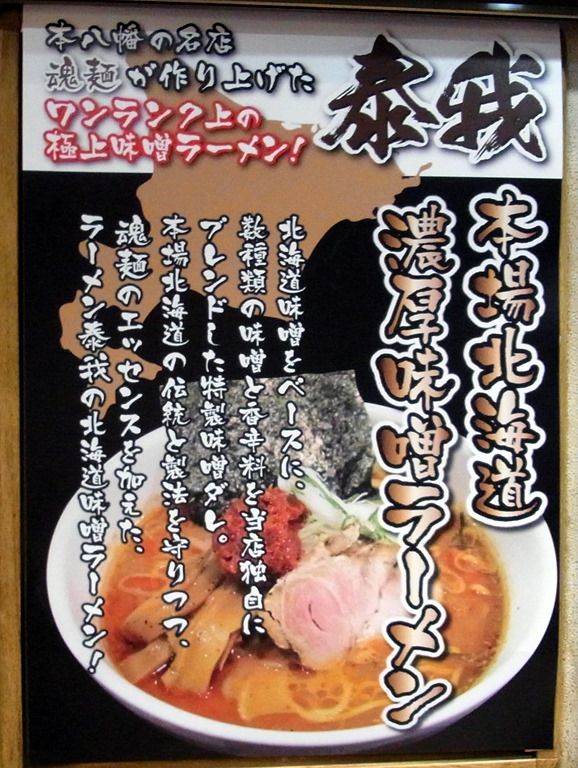 本八幡の名店
魂麺が作り上げた
ワンランク上の
極上味噌ラーメン!
泰我
本場北海道
濃厚味噌ラーメン
北海道味噌をベースに、
数種類の味噌と香辛料を当店独自に
ブレンドした特製味噌ダレ。
本場北海道の伝統と製法を守りつつ、
魂麺のエッセンスを加えた、
ラーメン泰我の北海道味噌ラーメン!